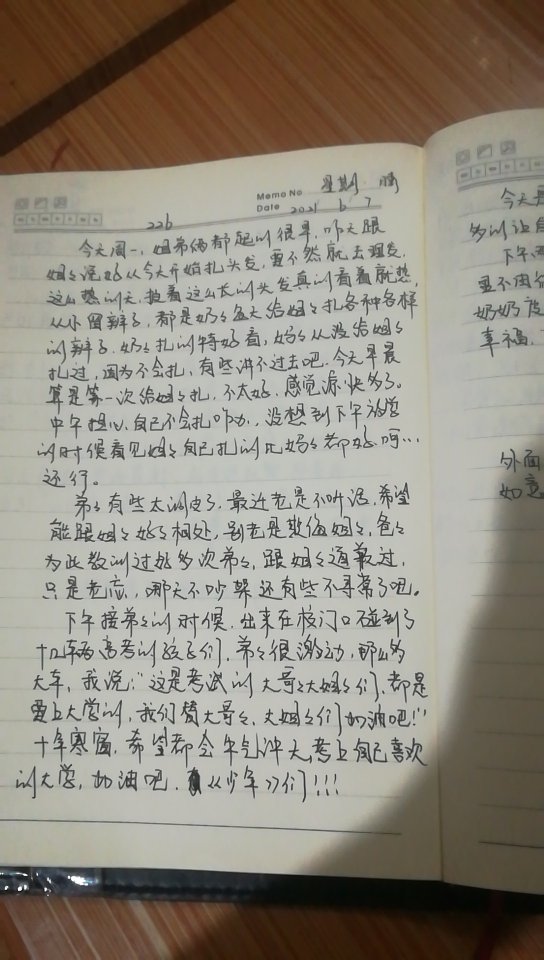 Memo No 星期一 晴
Date 2021 6 7
226
今天周一,姐弟俩都起的很早,昨天跟
姐々说好从今天开始扎头发,要不然就去理发,
这么热的天,披着这么长的头发真的看着就热,
从小留辫子,都是奶々每天给姐々扎各种各样
的辫子,奶々扎的特好看,妈々从没给姐々
扎过,因为不会扎,有些讲不过去吧,今天早晨
算是第一次给姐々扎,不太好,感觉凉快多了。
中午担心自己不会扎咋办,没想到下午放学
的时候看见姐々自己扎的比妈々都好,呵…
还行。
弟々有些太调皮了,最近老是不听话,希望
能跟姐々好々相处,别老是欺侮姐々,爸々
为此教训过好多次弟々,跟姐々道歉过,
只是老忘,哪天不吵架还有些不寻常了吧。
下午接弟々的时候,出来在校门口碰到了
十几辆高考的孩子们,弟々很激动,那么多
大车,我说:“这是考试的大哥々大姐々们,都是
要上大学的,我们替大哥々、大姐々们加油吧!”
十年寒窗,希望都会牛气冲天,考上自己喜欢
的大学,加油吧,《少年》们!!!
今天是
多的让自
下午,
要不由
奶奶
幸福,
外面
如意